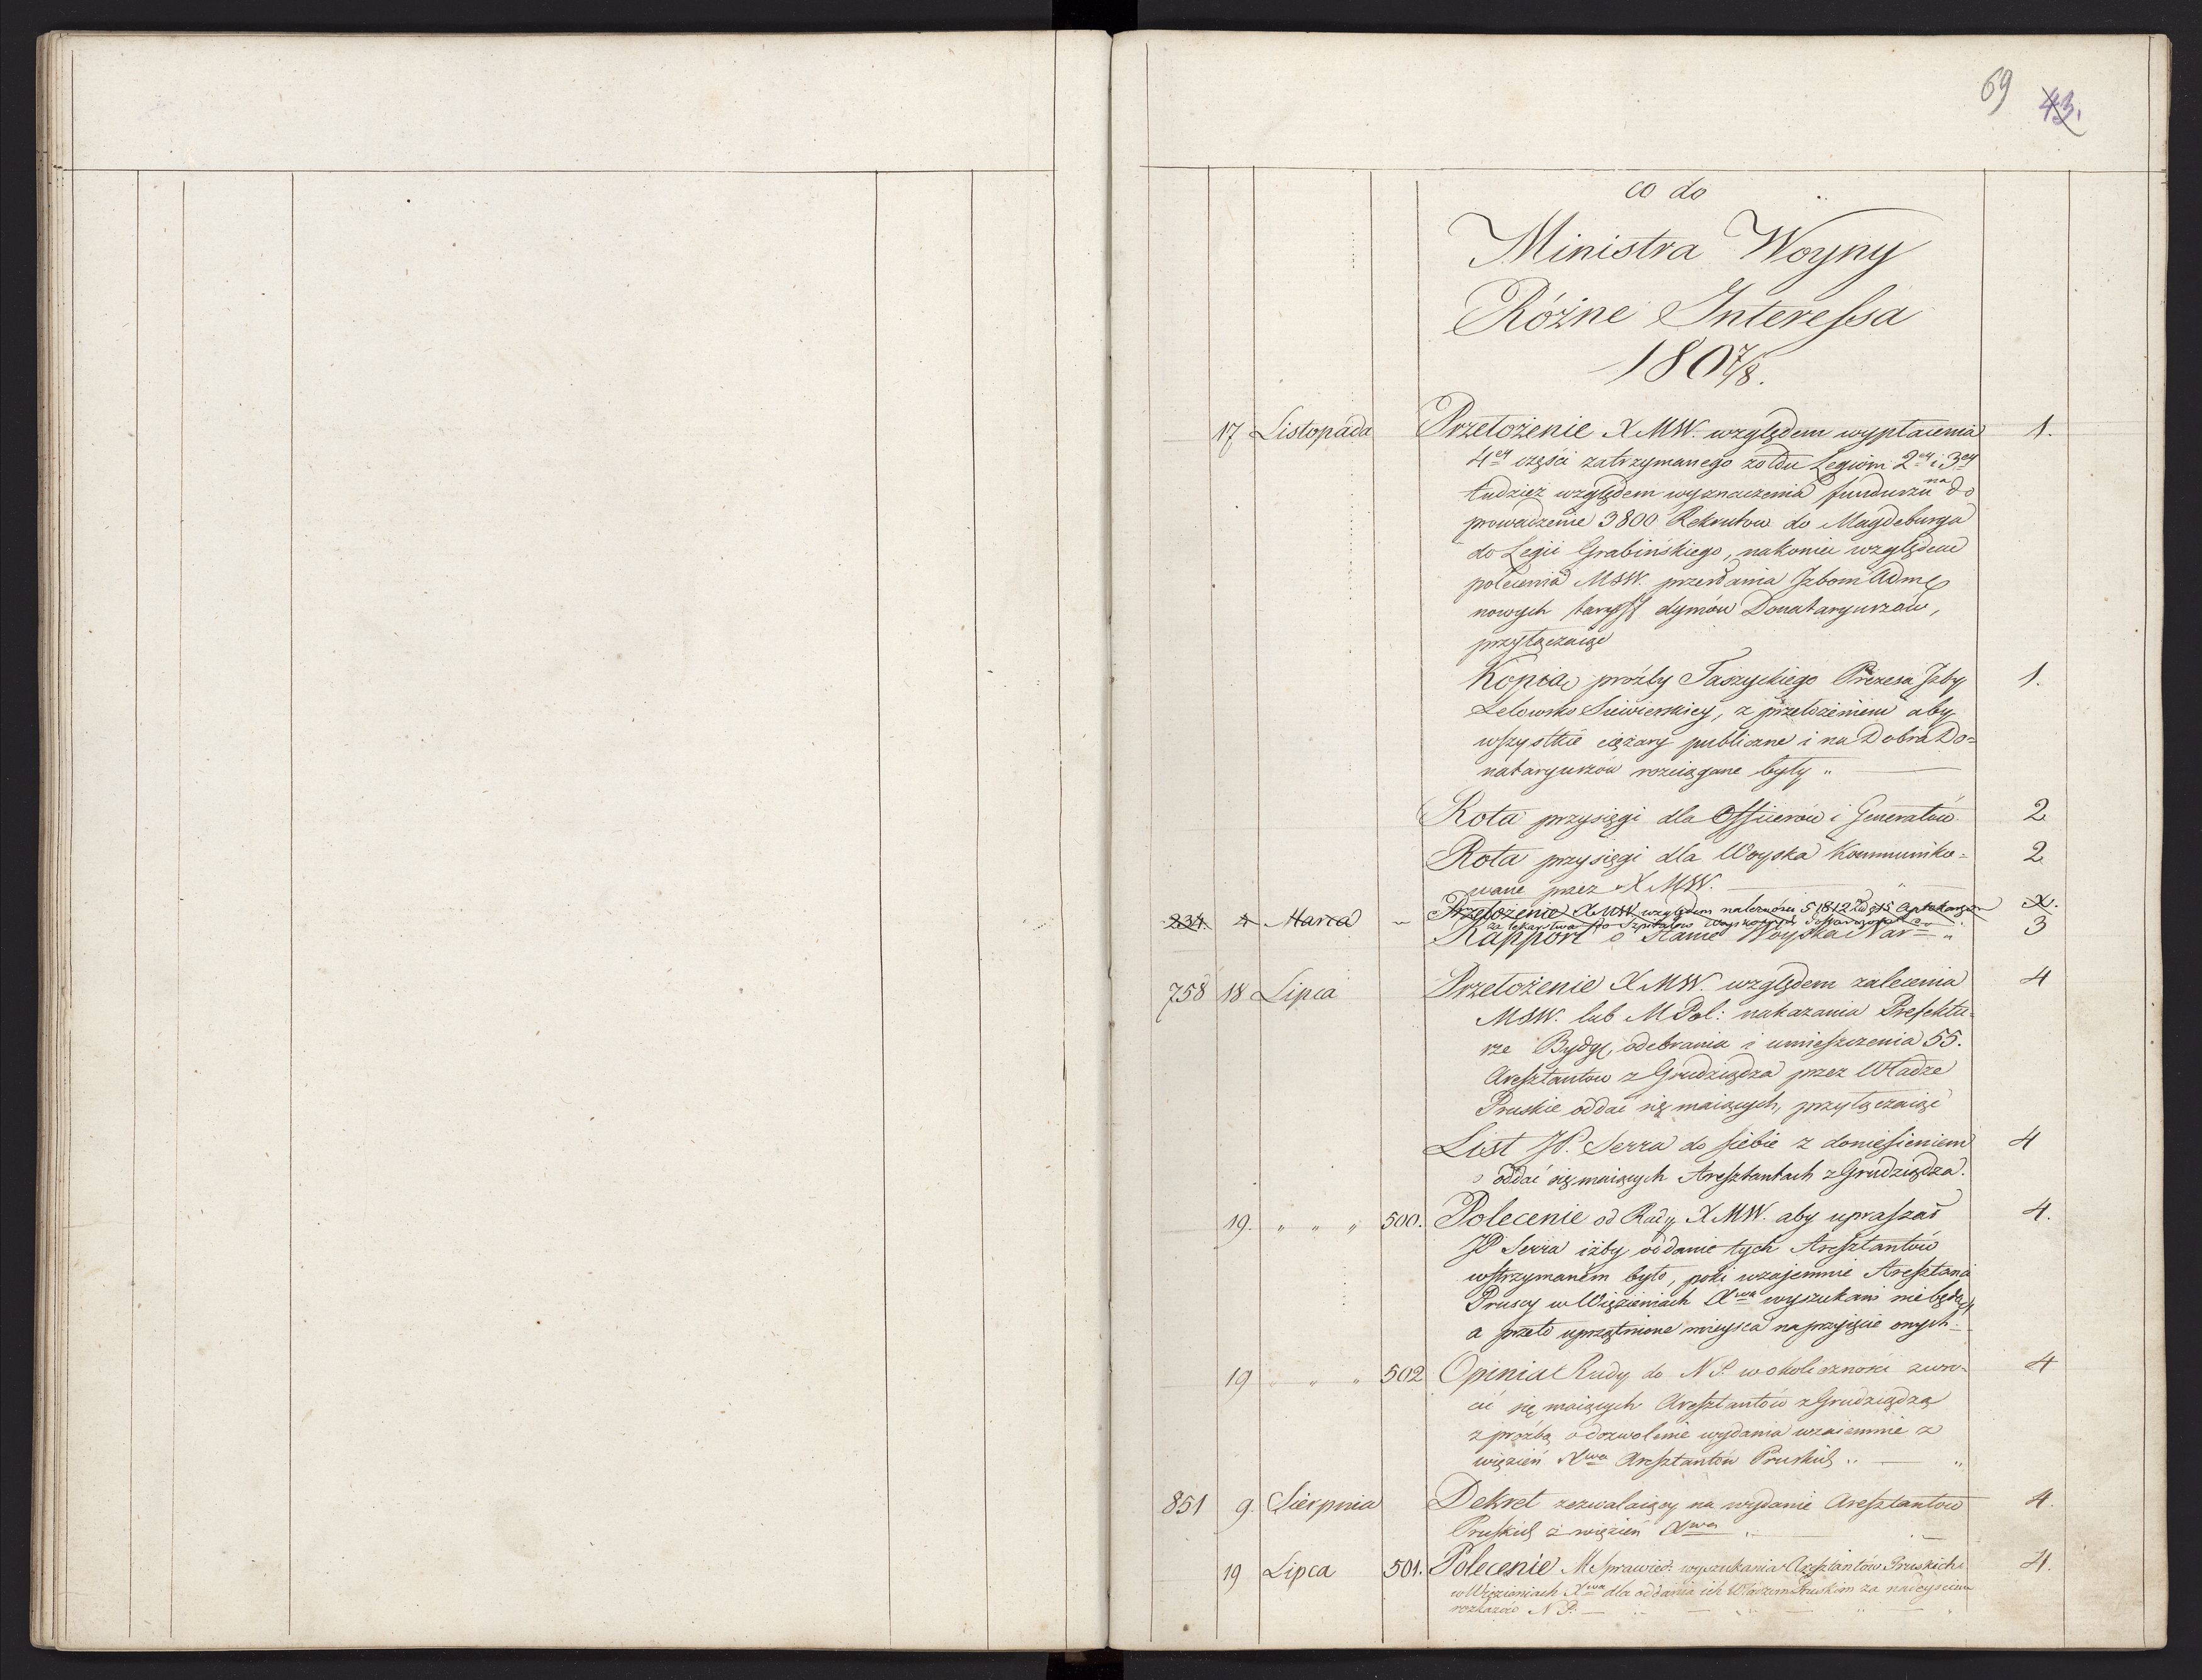 69 43.
co do
Ministra Woyny
Różne Interessa
1807/8.
17 Listopada Przełożenie X MW. względem wypłacenia 1.
4ey części zatrzymanego żołdu Legiom 2ey i 3ey
tudzież względem wyznaczenia funduszu na do
prowadzenie 3800 Rekrutow do Magdeburga
do Legii Grabińskiego, nakoniec względem
polecenia MSW. przesłania Izbom Adm
nowych taryff dymów Donataryuszów,
przyłączaiąc
Kopią prośby Taszyckiego Prezesa Izby 1.
Lelowsko Siewierskiey, z przełożeniem aby
wszystkie ciężary publiczne i na Dobra Do=
nataryuszów rozciągane były "
Rota przysięgi dla Officerów i Generałów 2
Rota przysięgi dla Woyska kommuniko= 2
wane przez X MW.
234. 4 Marca Przełożenie X MW względem należności 51812 zł g 15 Aptekarzom X.
za lekarstwa do Szpitalow Woyskowych
Rapport o Stanie Woyska Nar " 3
758 18 Lipca Przełożenie X MW. względem zalecenia 4
MSW. lub M Pol: nakazania Prefektu=
rze Bydg, odebrania i umieszczenia 55.
Aresztantow z Grudziądza przez Władze
Pruskie oddać się maiących, przyłączaiąc
List JP. Serra do siebie z doniesieniem 4
o oddać się maiących Aresztantach z Grudziądza.
19. " " " 500. Polecenie od Rady X MW. aby upraszał 4.
JP Serra iżby oddanie tych Aresztantów
wstrzymanem było, póki wzajemnie Aresztanci
Pruscy w Więzieniach Xwa wyszukani nie będą,
a przeto uprzątnione mieysca na przyjęcie onych
19 " " 502 Opinia Rady do NP. w okoliczności zwro= 4
cić się maiących Aresztantów z Grudziądza
z prośbą o dozwolenie wydania wzaiemnie z
więzień Xwa Aresztantów Pruskich "
851 9. Sierpnia Dekret zezwalaiący na wydanie Aresztantow 4.
Pruskich z więzień Xwa "
19 Lipca 501. Polecenie M Sprawied: wyszukania Aresztantów Pruskich 4.
w Więzieniach Xwa dla oddania ich Władzom Pruskim za nadeyściem
rozkazów NP.